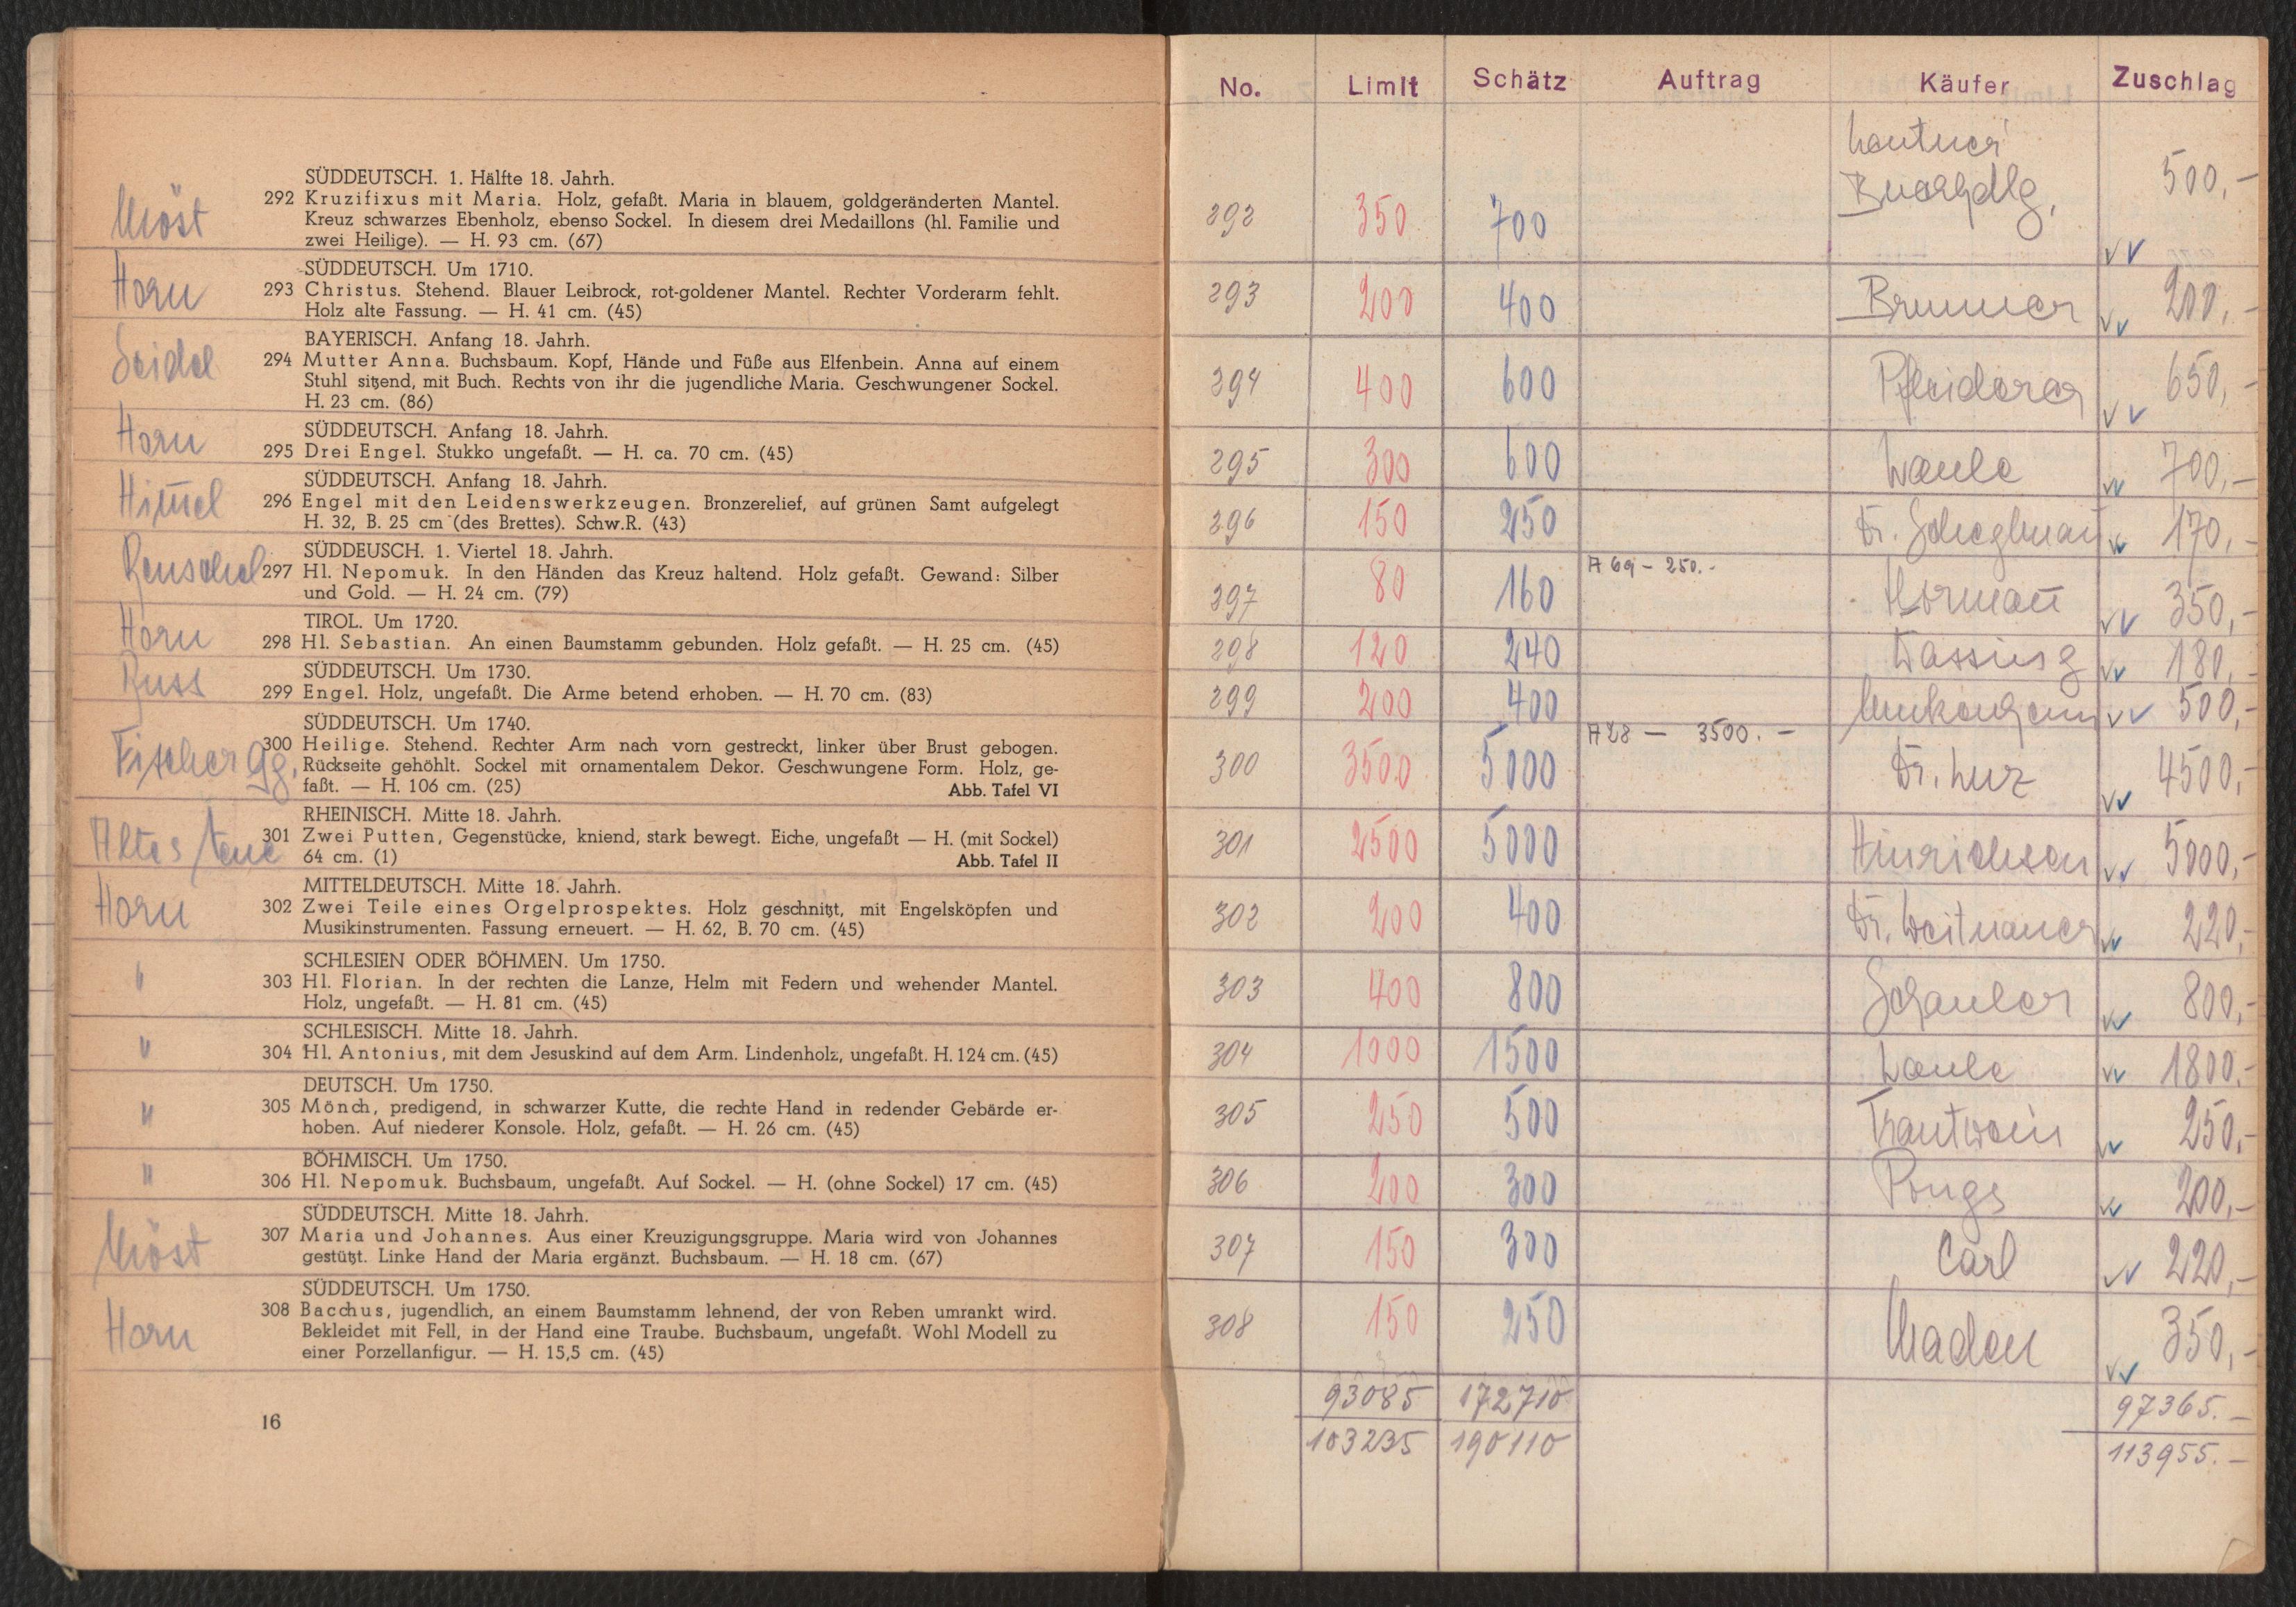 SÜDDEUTSCH. 1. Hälfte 18. Jahrh.
Möst
292 Kruzifixus mit Maria. Holz, gefaßt. Maria in blauem, goldgeränderten Mantel.
Kreuz schwarzes Ebenholz, ebenso Sockel. In diesem drei Medaillons (hl. Familie und
zwei Heilige). — H. 93 cm. (67)
Horn
SÜDDEUTSCH. Um 1710.
293 Christus. Stehend. Blauer Leibrock, rot-goldener Mantel. Rechter Vorderarm fehlt.
Holz alte Fassung. — H. 41 cm. (45)
Seidel
BAYERISCH. Anfang 18. Jahrh.
294 Mutter Anna. Buchsbaum. Kopf, Hände und Füße aus Elfenbein. Anna auf einem
Stuhl sitzend, mit Buch. Rechts von ihr die jugendliche Maria. Geschwungener Sockel.
H. 23 cm. (86)
Horn
SÜDDEUTSCH. Anfang 18. Jahrh.
295 Drei Engel. Stukko ungefaßt. — H. ca. 70 cm. (45)
Himel
SÜDDEUTSCH. Anfang 18. Jahrh.
296 Engel mit den Leidenswerkzeugen. Bronzerelief, auf grünen Samt aufgelegt
H. 32, B. 25 cm (des Brettes). Schw.R. (43)
Renschel
SÜDDEUSCH. 1. Viertel 18. Jahrh.
297 Hl. Nepomuk. In den Händen das Kreuz haltend. Holz gefaßt. Gewand: Silber
und Gold. — H. 24 cm. (79)
Horn
TIROL. Um 1720.
298 Hl. Sebastian. An einen Baumstamm gebunden. Holz gefaßt. — H. 25 cm. (45)
Russ
SÜDDEUTSCH. Um 1730.
299 Engel. Holz, ungefaßt. Die Arme betend erhoben. — H. 70 cm. (83)
Fischer Gg.
SÜDDEUTSCH. Um 1740.
300 Heilige. Stehend. Rechter Arm nach vorn gestreckt, linker über Brust gebogen.
Rückseite gehöhlt. Sockel mit ornamentalem Dekor. Geschwungene Form. Holz, ge-
faßt. — H. 106 cm. (25) Abb. Tafel VI
Altes
RHEINISCH. Mitte 18. Jahrh.
301 Zwei Putten, Gegenstücke, kniend, stark bewegt. Eiche, ungefaßt — H. (mit Sockel)
64 cm. (1) Abb. Tafel II
Horn
MITTELDEUTSCH. Mitte 18. Jahrh.
302 Zwei Teile eines Orgelprospektes. Holz geschnitzt, mit Engelsköpfen und
Musikinstrumenten. Fassung erneuert. — H. 62, B. 70 cm. (45)
"
SCHLESIEN ODER BÖHMEN. Um 1750.
303 Hl. Florian. In der rechten die Lanze, Helm mit Federn und wehender Mantel.
Holz, ungefaßt. — H. 81 cm. (45)
"
SCHLESISCH. Mitte 18. Jahrh.
304 Hl. Antonius, mit dem Jesuskind auf dem Arm. Lindenholz, ungefaßt. H. 124 cm. (45)
"
DEUTSCH. Um 1750.
305 Mönch, predigend, in schwarzer Kutte, die rechte Hand in redender Gebärde er-
hoben. Auf niederer Konsole. Holz, gefaßt. — H. 26 cm. (45)
"
BÖHMISCH. Um 1750.
306 Hl. Nepomuk. Buchsbaum, ungefaßt. Auf Sockel. — H. (ohne Sockel) 17 cm. (45)
Möst
SÜDDEUTSCH. Mitte 18. Jahrh.
307 Maria und Johannes. Aus einer Kreuzigungsgruppe. Maria wird von Johannes
gestützt. Linke Hand der Maria ergänzt. Buchsbaum. — H. 18 cm. (67)
Horn
SÜDDEUTSCH. Um 1750.
308 Bacchus, jugendlich, an einem Baumstamm lehnend, der von Reben umrankt wird.
Bekleidet mit Fell, in der Hand eine Traube. Buchsbaum, ungefaßt. Wohl Modell zu
einer Porzellanfigur. — H. 15,5 cm. (45)
16
No. Limit Schätz Auftrag Käufer Zuschlag
292 350 700 500,-
293 200 400 Brunner 200,-
294 400 600 Pfleiderer 650,-
295 300 600 700,-
296 150 250 Dr. 170,-
297 80 160 A 69 - 250.- Hörman 350,-
298 120 240 Wassing 180,-
299 200 400 500,-
300 3500 5000 A 28 — 3500.- Dr. Lurz 4500,-
301 2500 5000 Hinrichsen 5000,-
302 200 400 Dr. Weitnauer 220,-
303 400 800 800,-
304 1000 1500 1800.-
305 250 500 Trautwein 250,-
306 200 300 Pongs 200,-
307 150 300 Carl 220,-
308 150 250 350,-
93085 172710 97365.-
103235 190110 113955.-